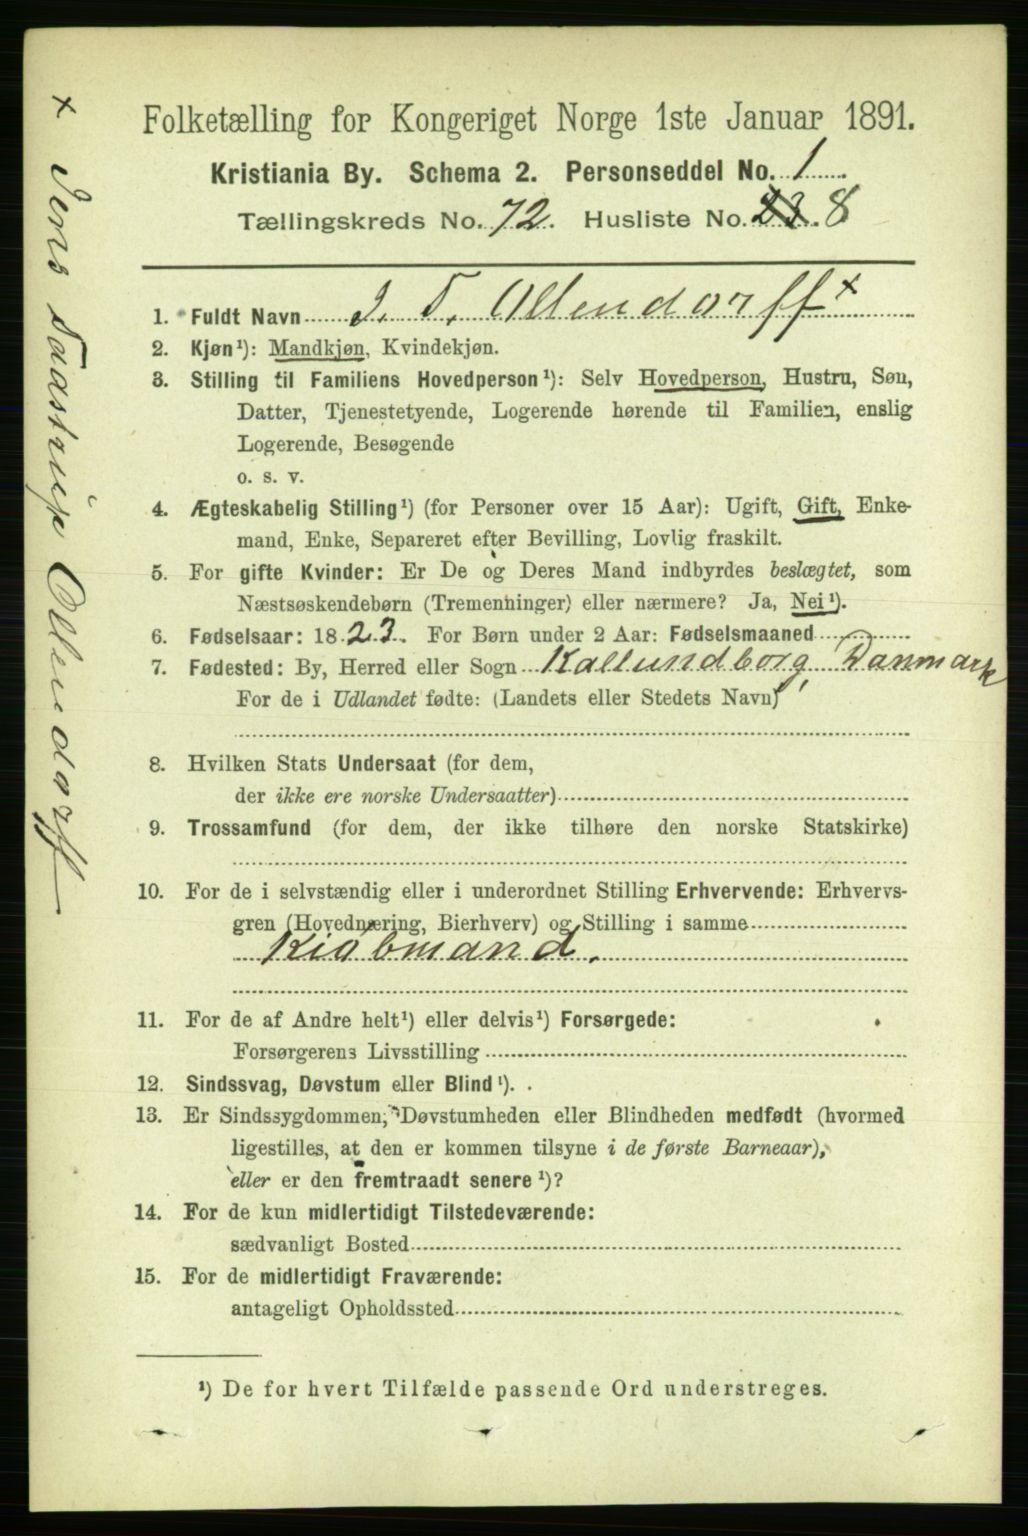 Folketælling for Kongeriget Norge 1ste Januar 1891.
Kristiania By. Schema 2. Personseddel No. 1
Tællingskreds No. 72. Husliste No. 23. 8
1. Fuldt Navn J. F. Ollendorff x
2. Kjøn¹): Mandkjøn, Kvindekjøn.
3. Stilling til Familiens Hovedperson¹): Selv Hovedperson, Hustru, Søn,
Datter, Tjenestetyende, Logerende hørende til Familien, enslig
Logerende, Besøgende
o. s. v.
4. Ægteskabelig Stilling¹) (for Personer over 15 Aar): Ugift, Gift, Enke-
mand, Enke, Separeret efter Bevilling, Lovlig fraskilt.
5. For gifte Kvinder: Er De og Deres Mand indbyrdes beslægtet, som
Næstsøskendebørn (Tremenninger) eller nærmere? Ja, Nei¹).
6. Fødselsaar: 1823. For Børn under 2 Aar: Fødselsmaaned
7. Fødested: By, Herred eller Sogn Kallundborg, Danmark
For de i Udlandet fødte: (Landets eller Stedets Navn)
8. Hvilken Stats Undersaat (for dem,
der ikke ere norske Undersaatter)
9. Trossamfund (for dem, der ikke tilhøre den norske Statskirke)
10. For de i selvstændig eller i underordnet Stilling Erhvervende: Erhvervs-
gren (Hovednæring, Bierhverv) og Stilling i samme
Kiøbmand.
11. For de af Andre helt¹) eller delvis¹) Forsørgede:
Forsørgerens Livsstilling
12. Sindssvag, Døvstum eller Blind¹).
13. Er Sindssygdommen, Døvstumheden eller Blindheden medfødt (hvormed
ligestilles, at den er kommen tilsyne i de første Barneaar),
eller er den fremtraadt senere¹)?
14. For de kun midlertidigt Tilstedeværende:
sædvanligt Bosted
15. For de midlertidigt Fraværende:
antageligt Opholdssted
¹) De for hvert Tilfælde passende Ord understreges.
x Jens Ollendorff